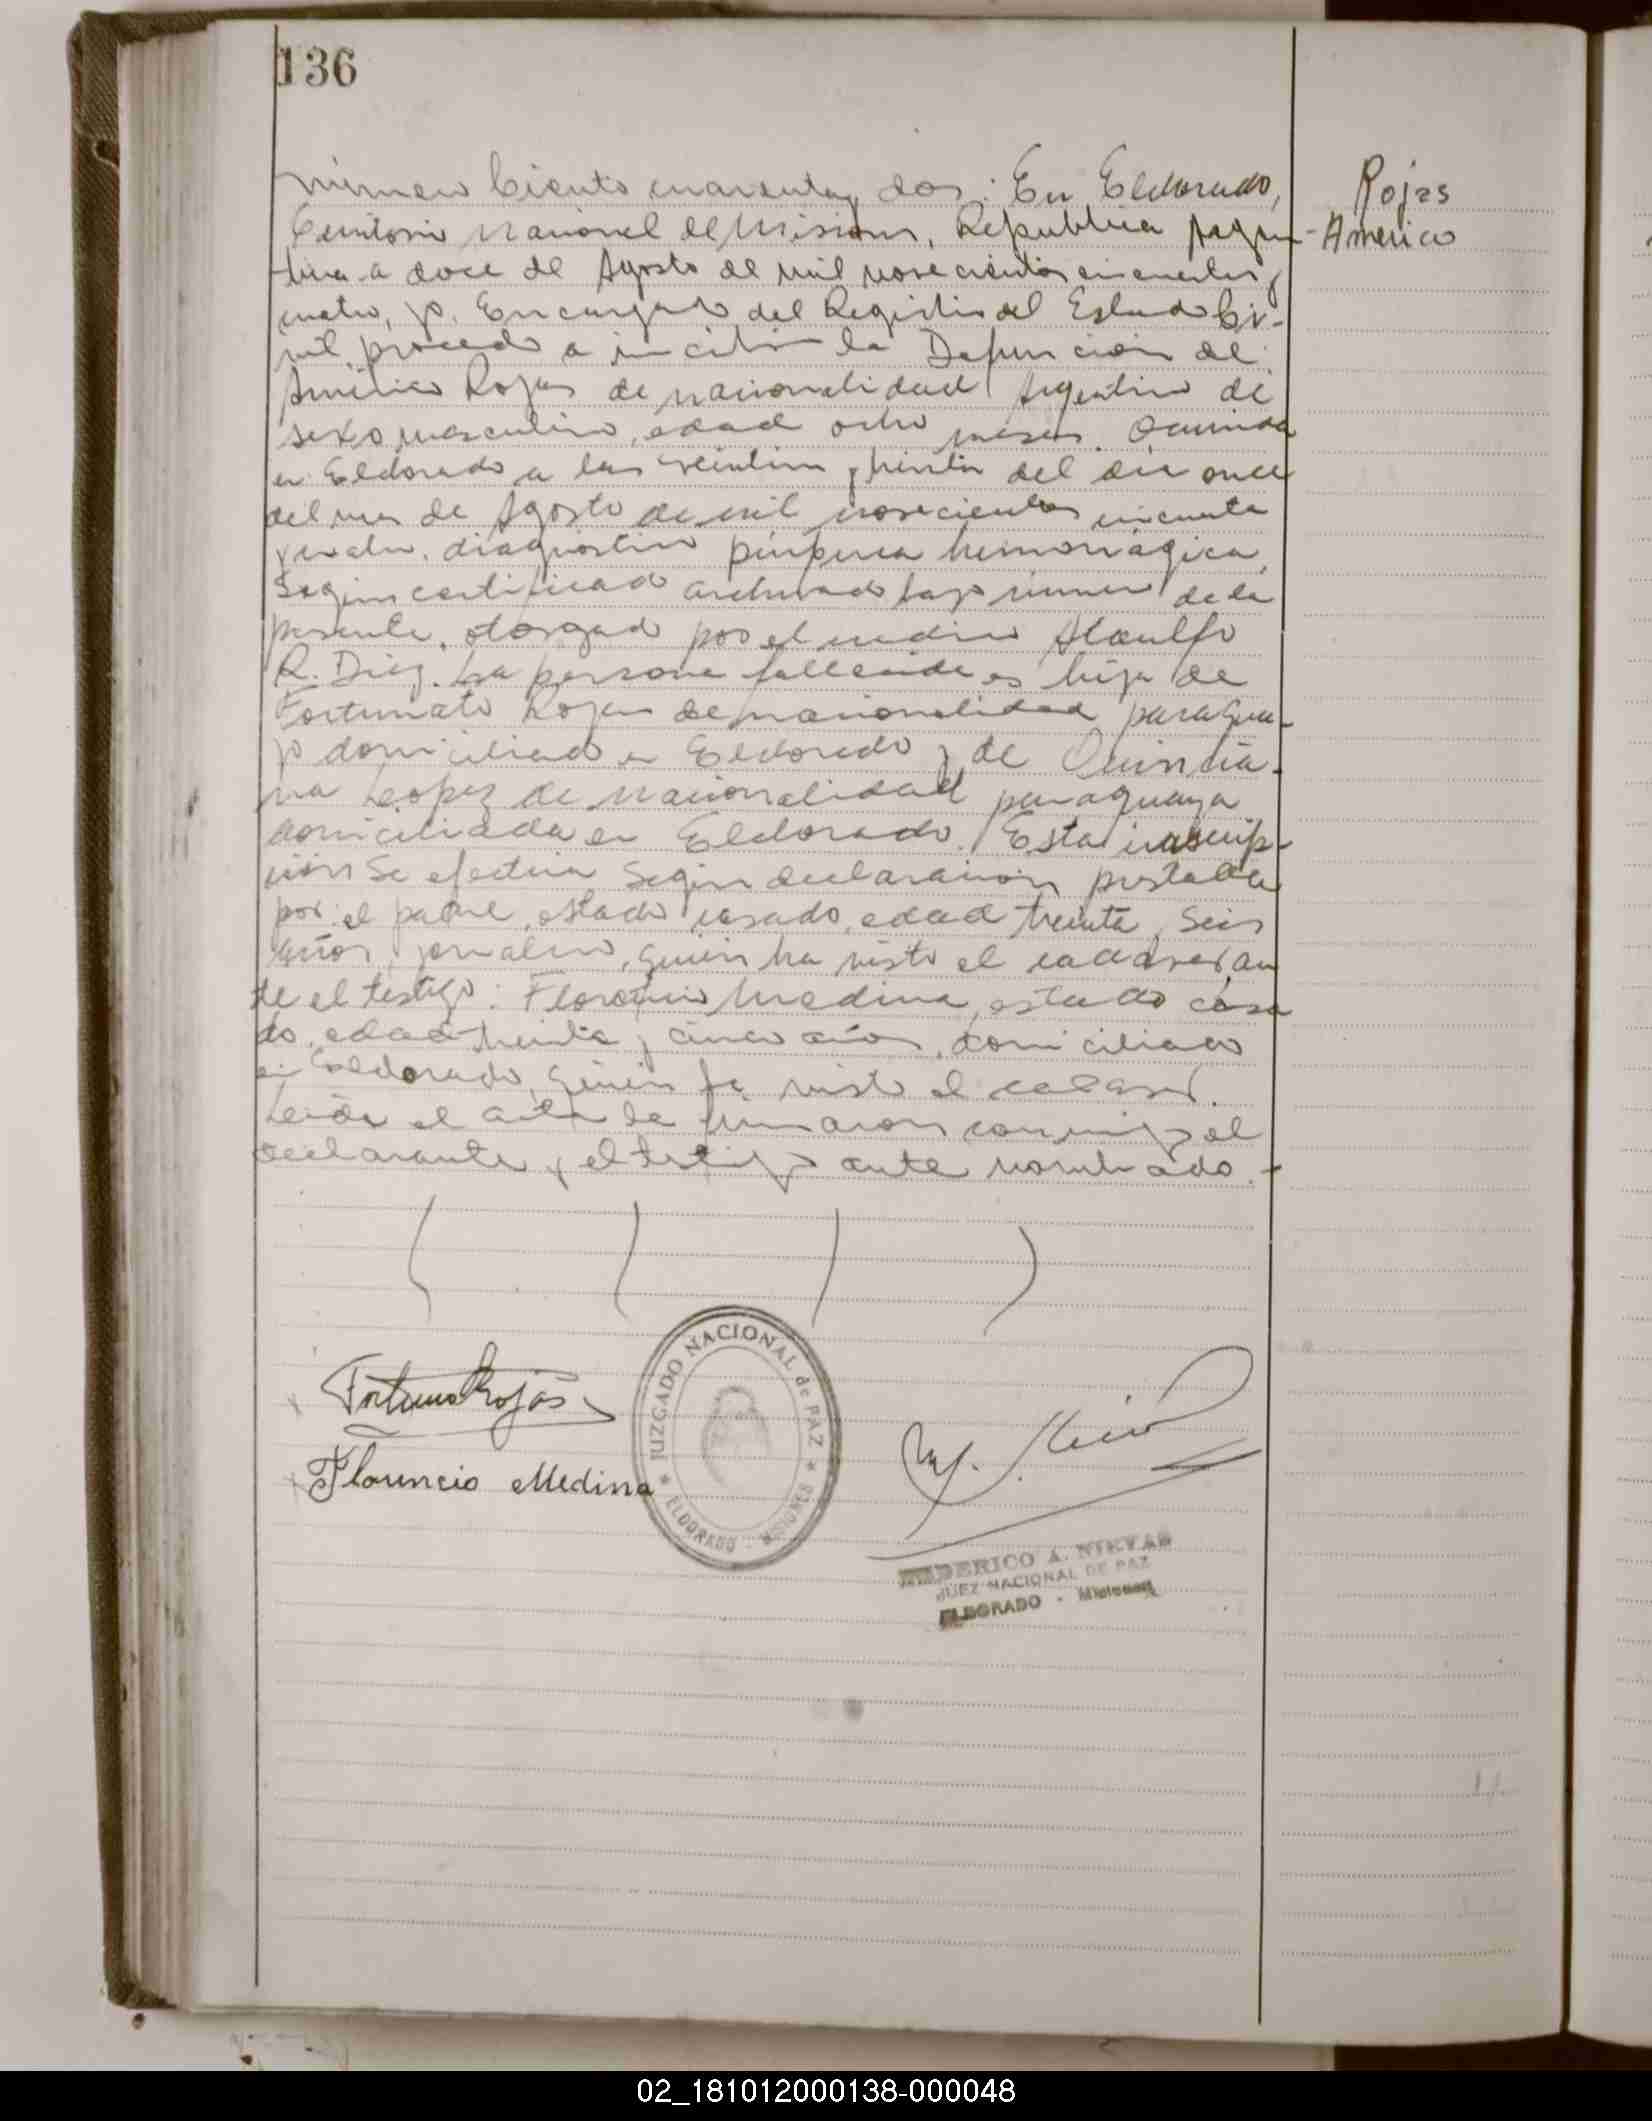 136
Rojas
Americo
número Ciento cuarenta y dos: En Eldorado,
Territorio Nacional de Misiones, República Argen-
tina a doce de Agosto de mil novecientos cincuenta y
cuatro, yo. Encargado del Registro del Estado Ci-
vil, procedo a inscribir la Defunción de
Américo Rojas de nacionalidad Argentino de
sexo masculino, edad ocho meses. Ocurrida
en Eldorado a las veintiun y treinta del día once
del mes de Agosto de mil novecientos cincuenta
y cuatro. diagnóstico púrpura hemorrágica,
Según certificado archivado bajo número de la
presente, otorgado por el médico Ataulfo
R. Diez. La persona fallecida es hija de
Fortunato Rojas de nacionalidad paragua-
yo domiciliado en Eldorado y de
na Lopez de nacionalidad paraguaya
domiciliada en Eldorado. Esta inscrip-
ción Se efectúa Según declaración prestada
por el padre, estado casado, edad treinta y Seis
años, jornalero, quien ha visto el cadaver, an
te el testigo: Florencio Medina, estado casa
do, edad treinta y cinco años, domiciliado
en Eldorado, quien ha visto el cadaver.
Leída el acta la firmaron conmigo el
declarante y el testigo ante nombrado.-
Fortunato Rojas
Florencio Medina
JUZGADO NACIONAL de PAZ
ELDORADO - MISIONES
FEDERICO A. NIEVAS
JUEZ NACIONAL DE PAZ
ELDORADO - Misiones
02_181012000138-000048